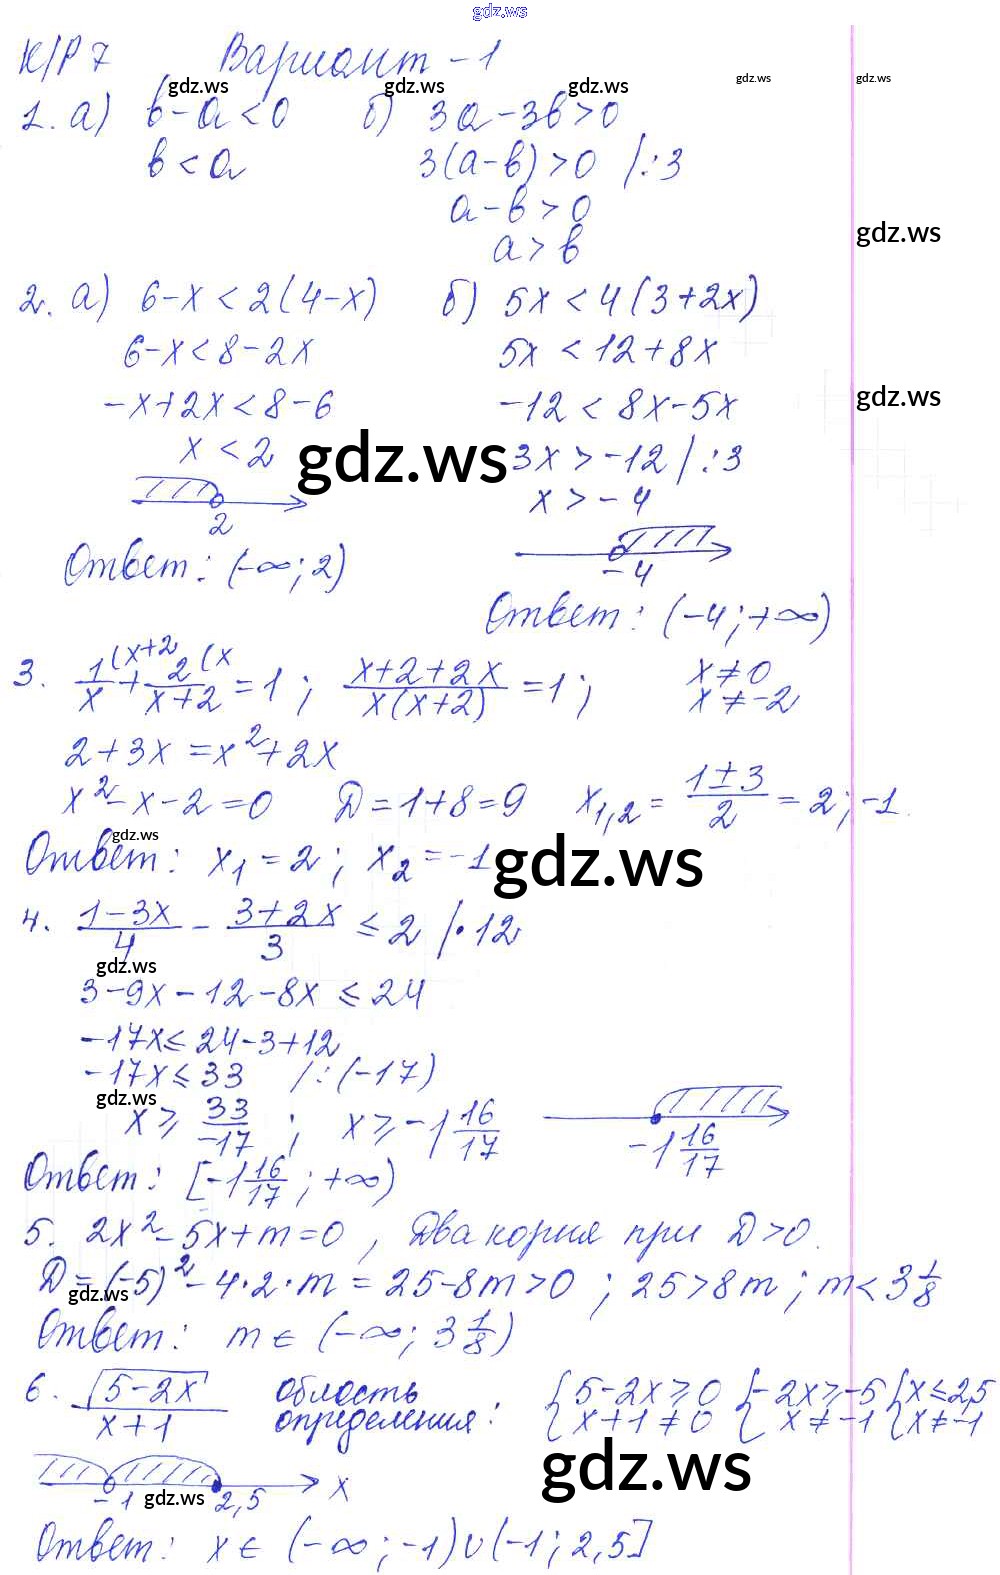 gdz.ws
К/Р 7 Вариант - 1
gdz.ws gdz.ws gdz.ws gdz.ws
1. а) b - a < 0 б) 3a - 3b > 0
b < a 3(a - b) > 0 /:3
a - b > 0
gdz.ws
a > b
2. а) 6 - x < 2(4 - x) б) 5x < 4(3 + 2x)
6 - x < 8 - 2x 5x < 12 + 8x
gdz.ws
-x + 2x < 8 - 6 -12 < 8x - 5x
x < 2 gdz.ws 3x > -12 /:3
x > -4
2
-4
Ответ: (-∞; 2)
Ответ: (-4; +∞)
3. 1/x (x+2 + 2/(x+2) (x = 1; (x+2+2x)/(x(x+2)) = 1; x ≠ 0
x ≠ -2
2 + 3x = x² + 2x
x² - x - 2 = 0 Д = 1 + 8 = 9 x₁,₂ = (1±3)/2 = 2; -1.
gdz.ws
Ответ: x₁ = 2; x₂ = -1 gdz.ws
4. (1-3x)/4 - (3+2x)/3 ≤ 2 /·12
gdz.ws
3 - 9x - 12 - 8x ≤ 24
-17x ≤ 24 - 3 + 12
-17x ≤ 33 /:(-17)
gdz.ws
x ≥ 33/-17; x ≥ -1 16/17
-1 16/17
Ответ: [-1 16/17; +∞)
5. 2x² - 5x + m = 0, Два корня при Д > 0.
Д = (-5)² - 4·2·m = 25 - 8m > 0; 25 > 8m; m < 3 1/8
gdz.ws
Ответ: m ∈ (-∞; 3 1/8)
6. √(5-2x)/(x+1) область определения: {5 - 2x ≥ 0 {-2x ≥ -5 {x ≤ 2,5
{x + 1 ≠ 0 {x ≠ -1 {x ≠ -1
gdz.ws
-1 gdz.ws 2,5 x
Ответ: x ∈ (-∞; -1) ∪ (-1; 2,5]